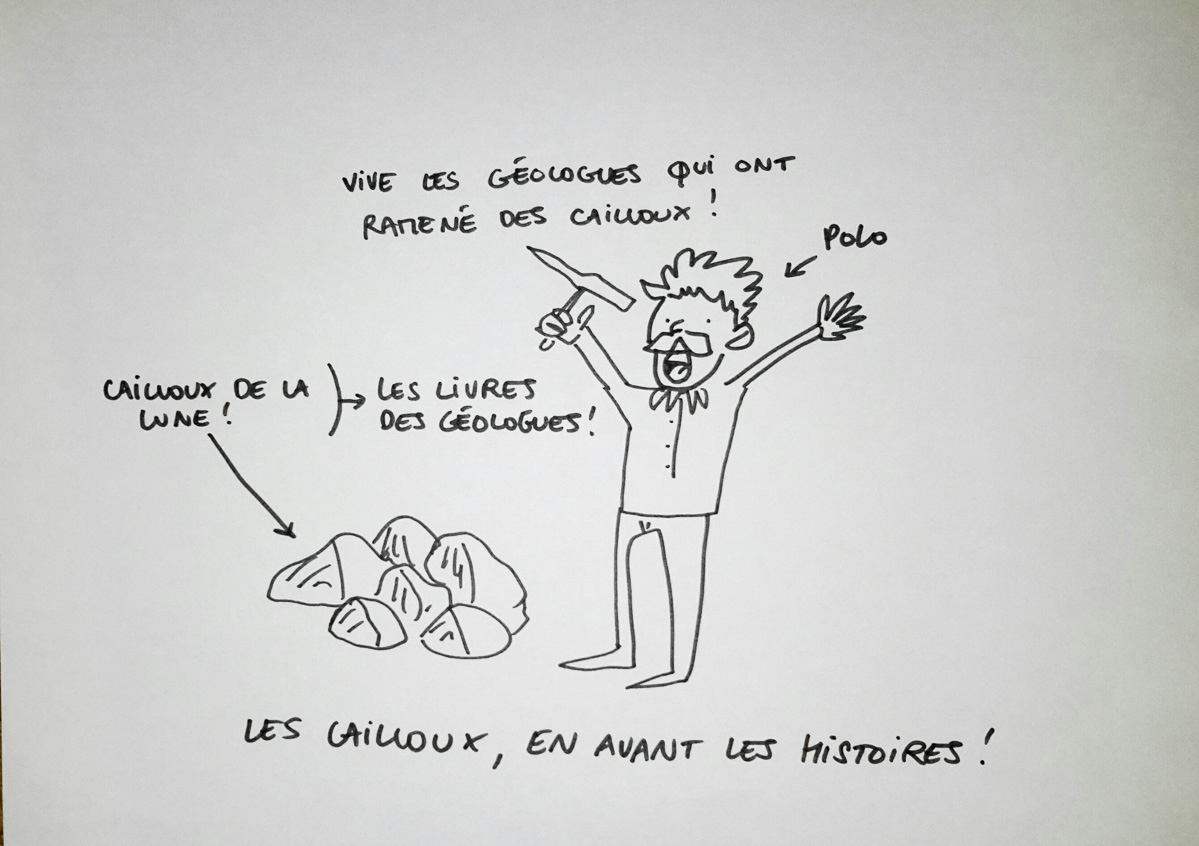 VIVE LES GÉOLOGUES QUI ONT
RAMENÉ DES CAILLOUX !
POLO
CAILLOUX DE LA
LUNE !
LES LIVRES
DES GÉOLOGUES !
LES CAILLOUX, EN AVANT LES HISTOIRES !